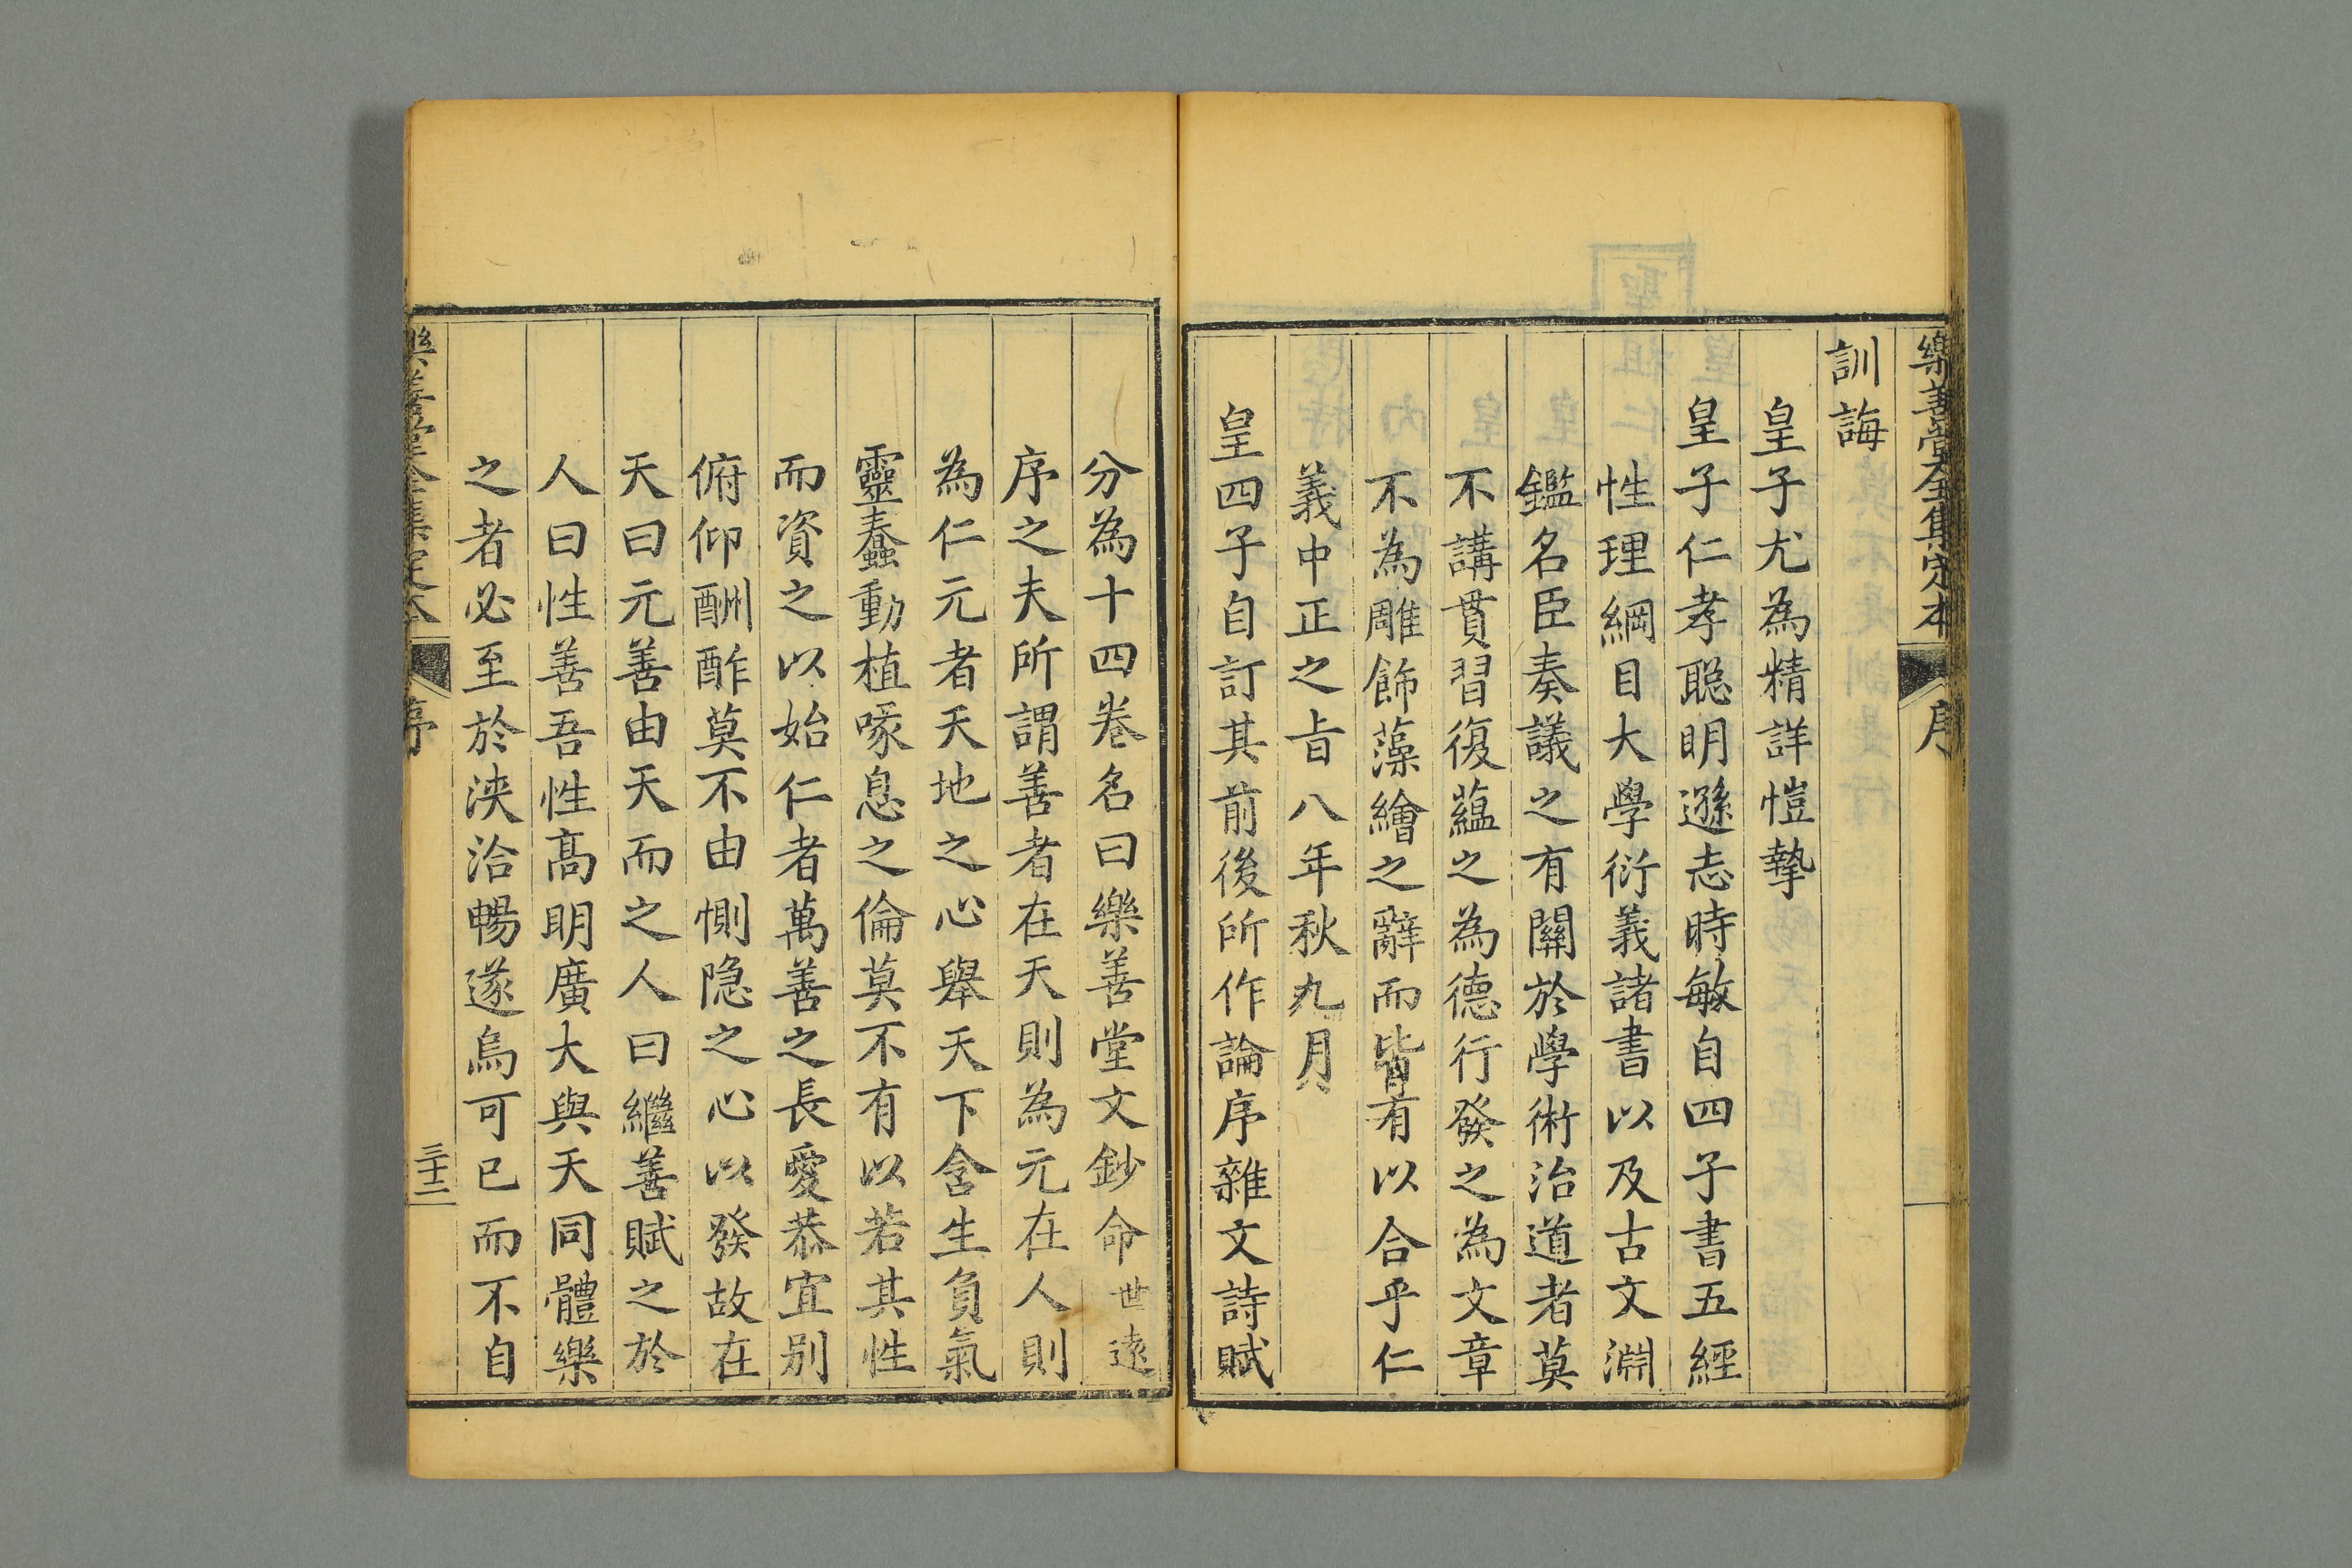 樂善堂全集定本
序
訓誨
皇子尤為精詳愷摯
皇子仁孝聰明遜志時敏自四子書五經
性理綱目大學衍義諸書以及古文淵
鑑名臣奏議之有關於學術治道者莫
不講貫習復蘊之為德行發之為文章
不為雕飾藻繪之辭而皆有以合乎仁
義中正之旨八年秋九月
皇四子自訂其前後所作論序雜文詩賦
分為十四卷名曰樂善堂文鈔命世遠
序之夫所謂善者在天則為元在人則
為仁元者天地之心舉天下含生負氣
靈蠢動植喙息之倫莫不有以若其性
而資之以始仁者萬善之長愛恭宜别
俯仰酬酢莫不由惻隐之心以發故在
天曰元善由天而之人曰繼善賦之於
人曰性善吾性髙明廣大與天同體樂
之者必至於浹洽暢遂烏可已而不自
樂善堂全集定本
序
三十二